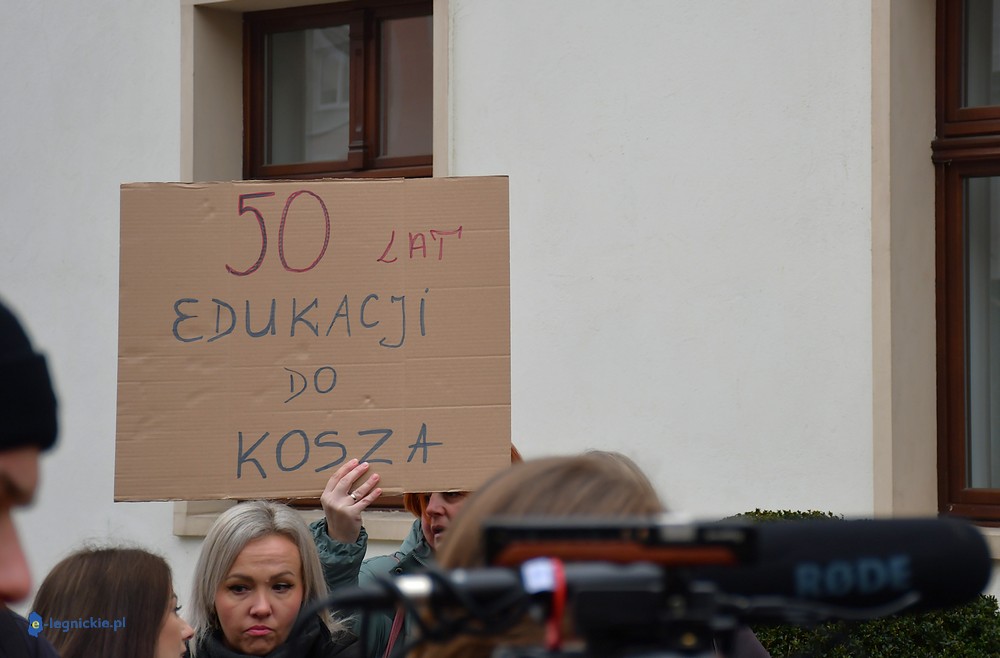 50 LAT
EDUKACJI
DO
KOSZA
RØDE
e-legnickie.pl